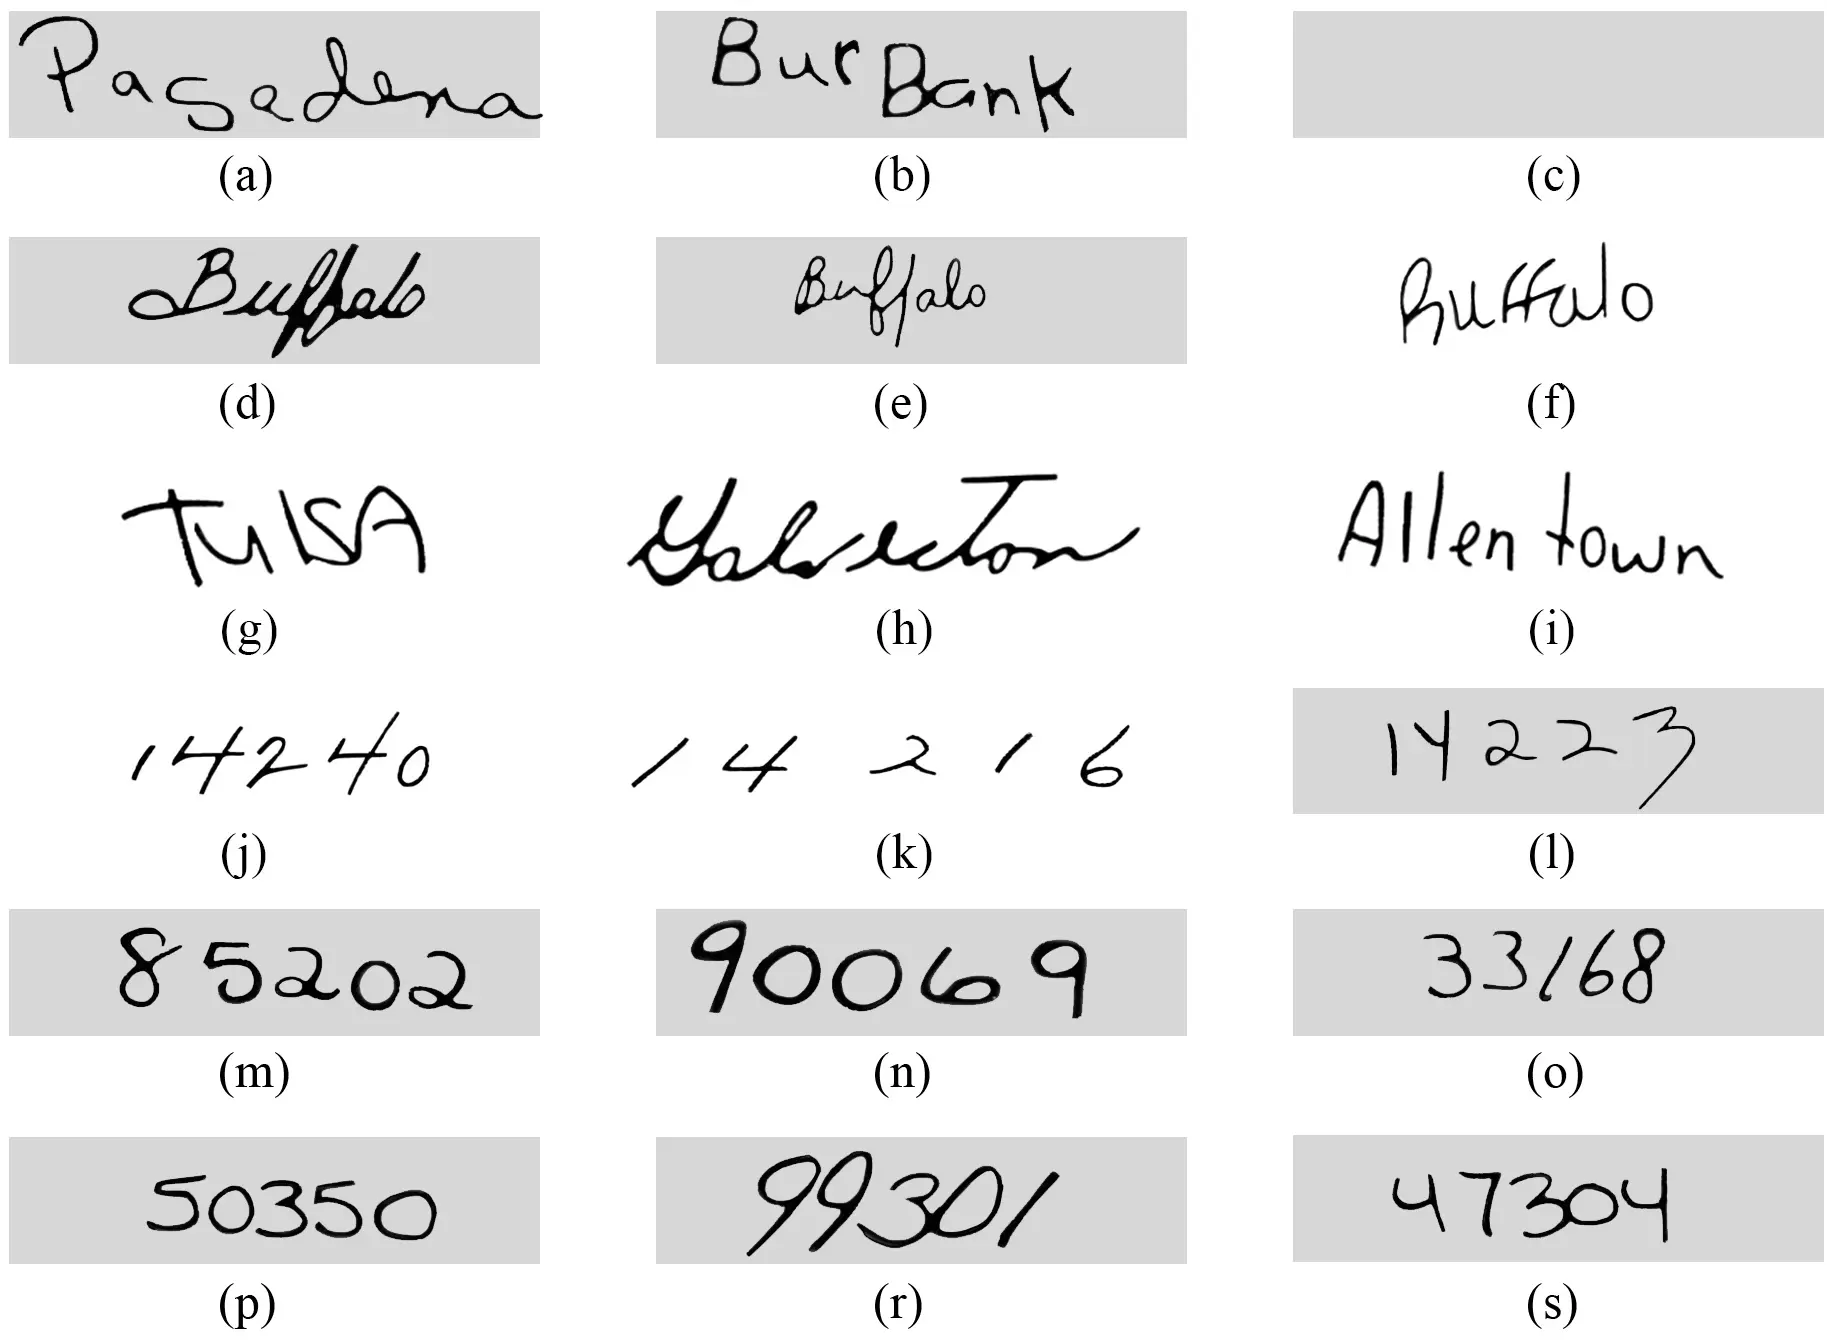 Pasadena BurBank
(a) (b) (c)
Buffalo Buffalo Buffalo
(d) (e) (f)
TulSA GalvesTon Allentown
(g) (h) (i)
14240 14216 14223
(j) (k) (l)
85202 90069 33168
(m) (n) (o)
50350 99301 47304
(p) (r) (s)